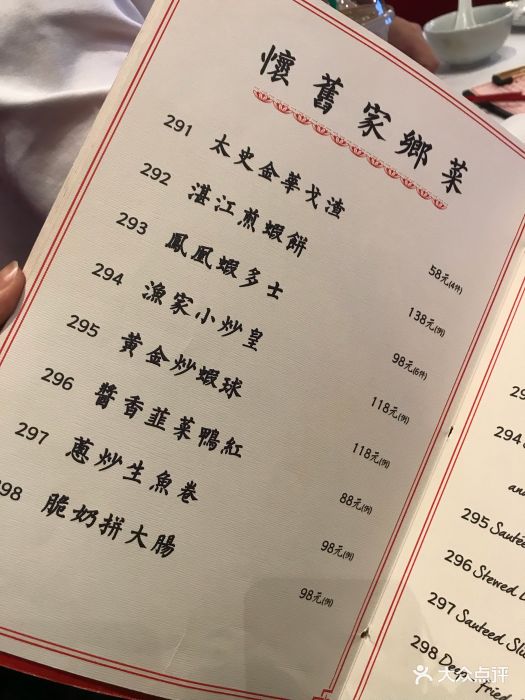 懷舊家鄉菜
291 太史金華戈渣 58元(4件)
292 湛江煎蝦餅 138元(例)
293 鳳凰蝦多士 98元(6件)
294 漁家小炒皇 118元(例)
295 黃金炒蝦球 118元(例)
296 醬香韮菜鴨紅 88元(例)
297 蔥炒生魚卷 98元(例)
298 脆奶拼大腸 98元(例)
294
an
295 Sauteed
296 Stewed
297 Sauteed
298 Deep Fried
大众点评